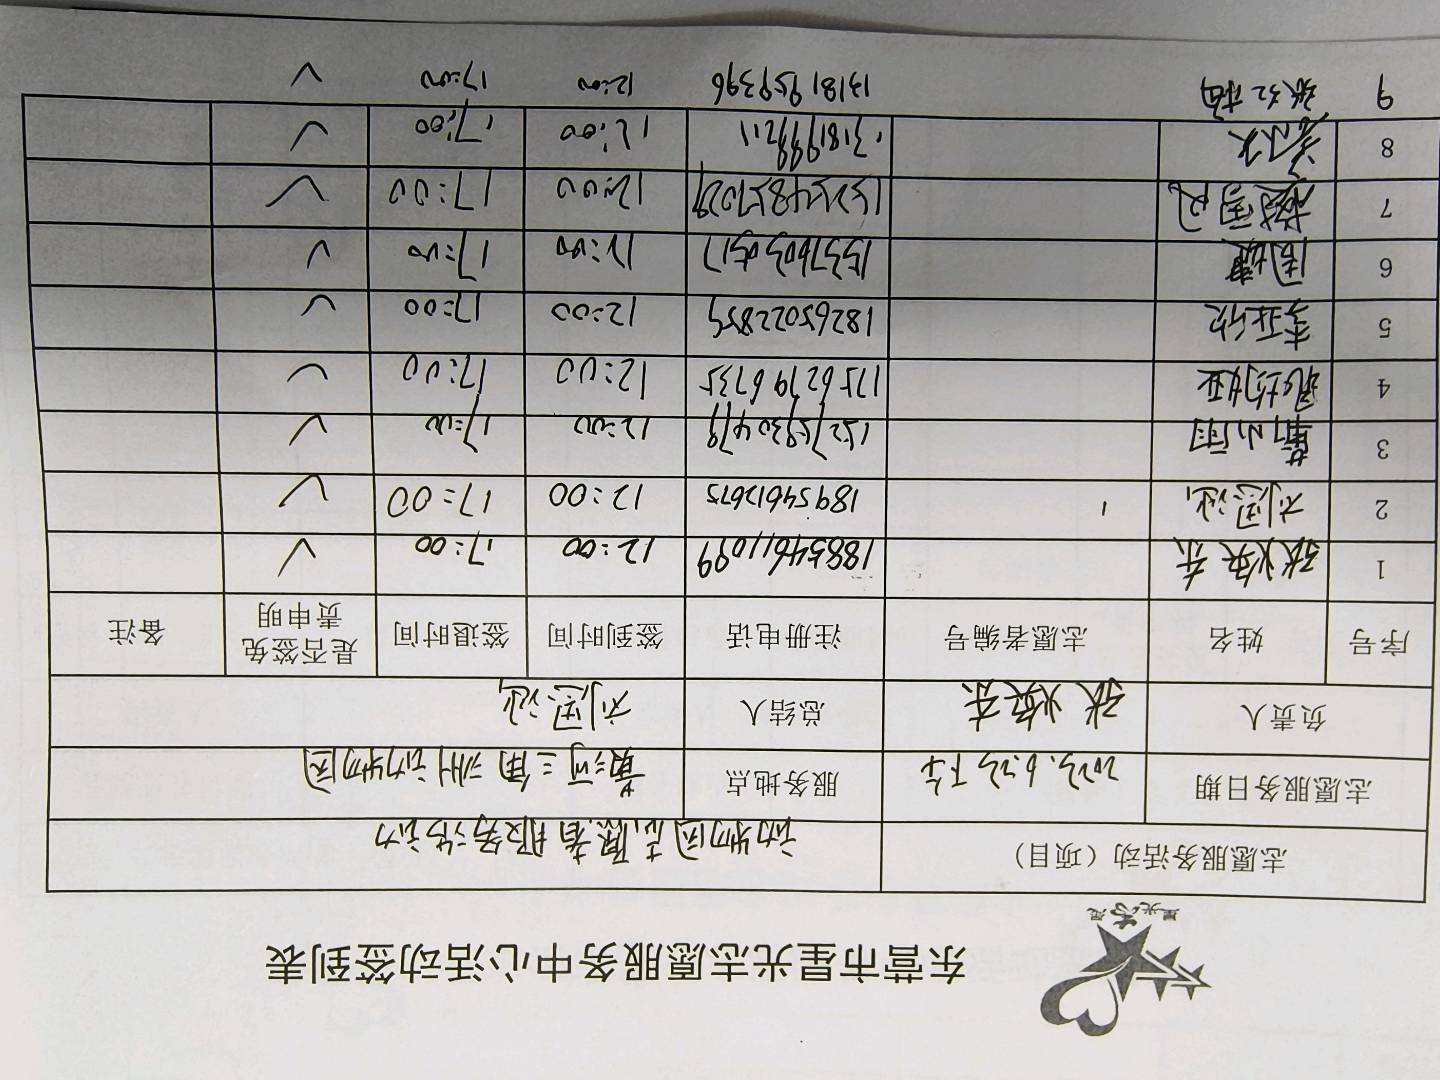 东营市星光志愿服务中心活动签到表
星光志愿
志愿服务活动（项目） 动物园志愿者服务活动
志愿服务日期 2023.6.23下午 服务地点 黄河三角洲动物园
负责人 张焕东 总结人 刘恩汕
序号 姓名 志愿者编号 注册电话 签到时间 签退时间 是否签免责申明 备注
1 张焕东 18854611099 12:00 17:00 ✓
2 刘恩汕 18954612675 12:00 17:00 ✓
3 靳小雨 15275930479 12:00 17:00 ✓
4 17562796735 12:00 17:00 ✓
5 李社欣 18265022859 12:00 17:00 ✓
6 15376030517 12:00 17:00 ✓
7 12:00 17:00 ✓
8 13181998211 12:00 17:00 ✓
9 张红梅 13181959396 12:00 17:00 ✓